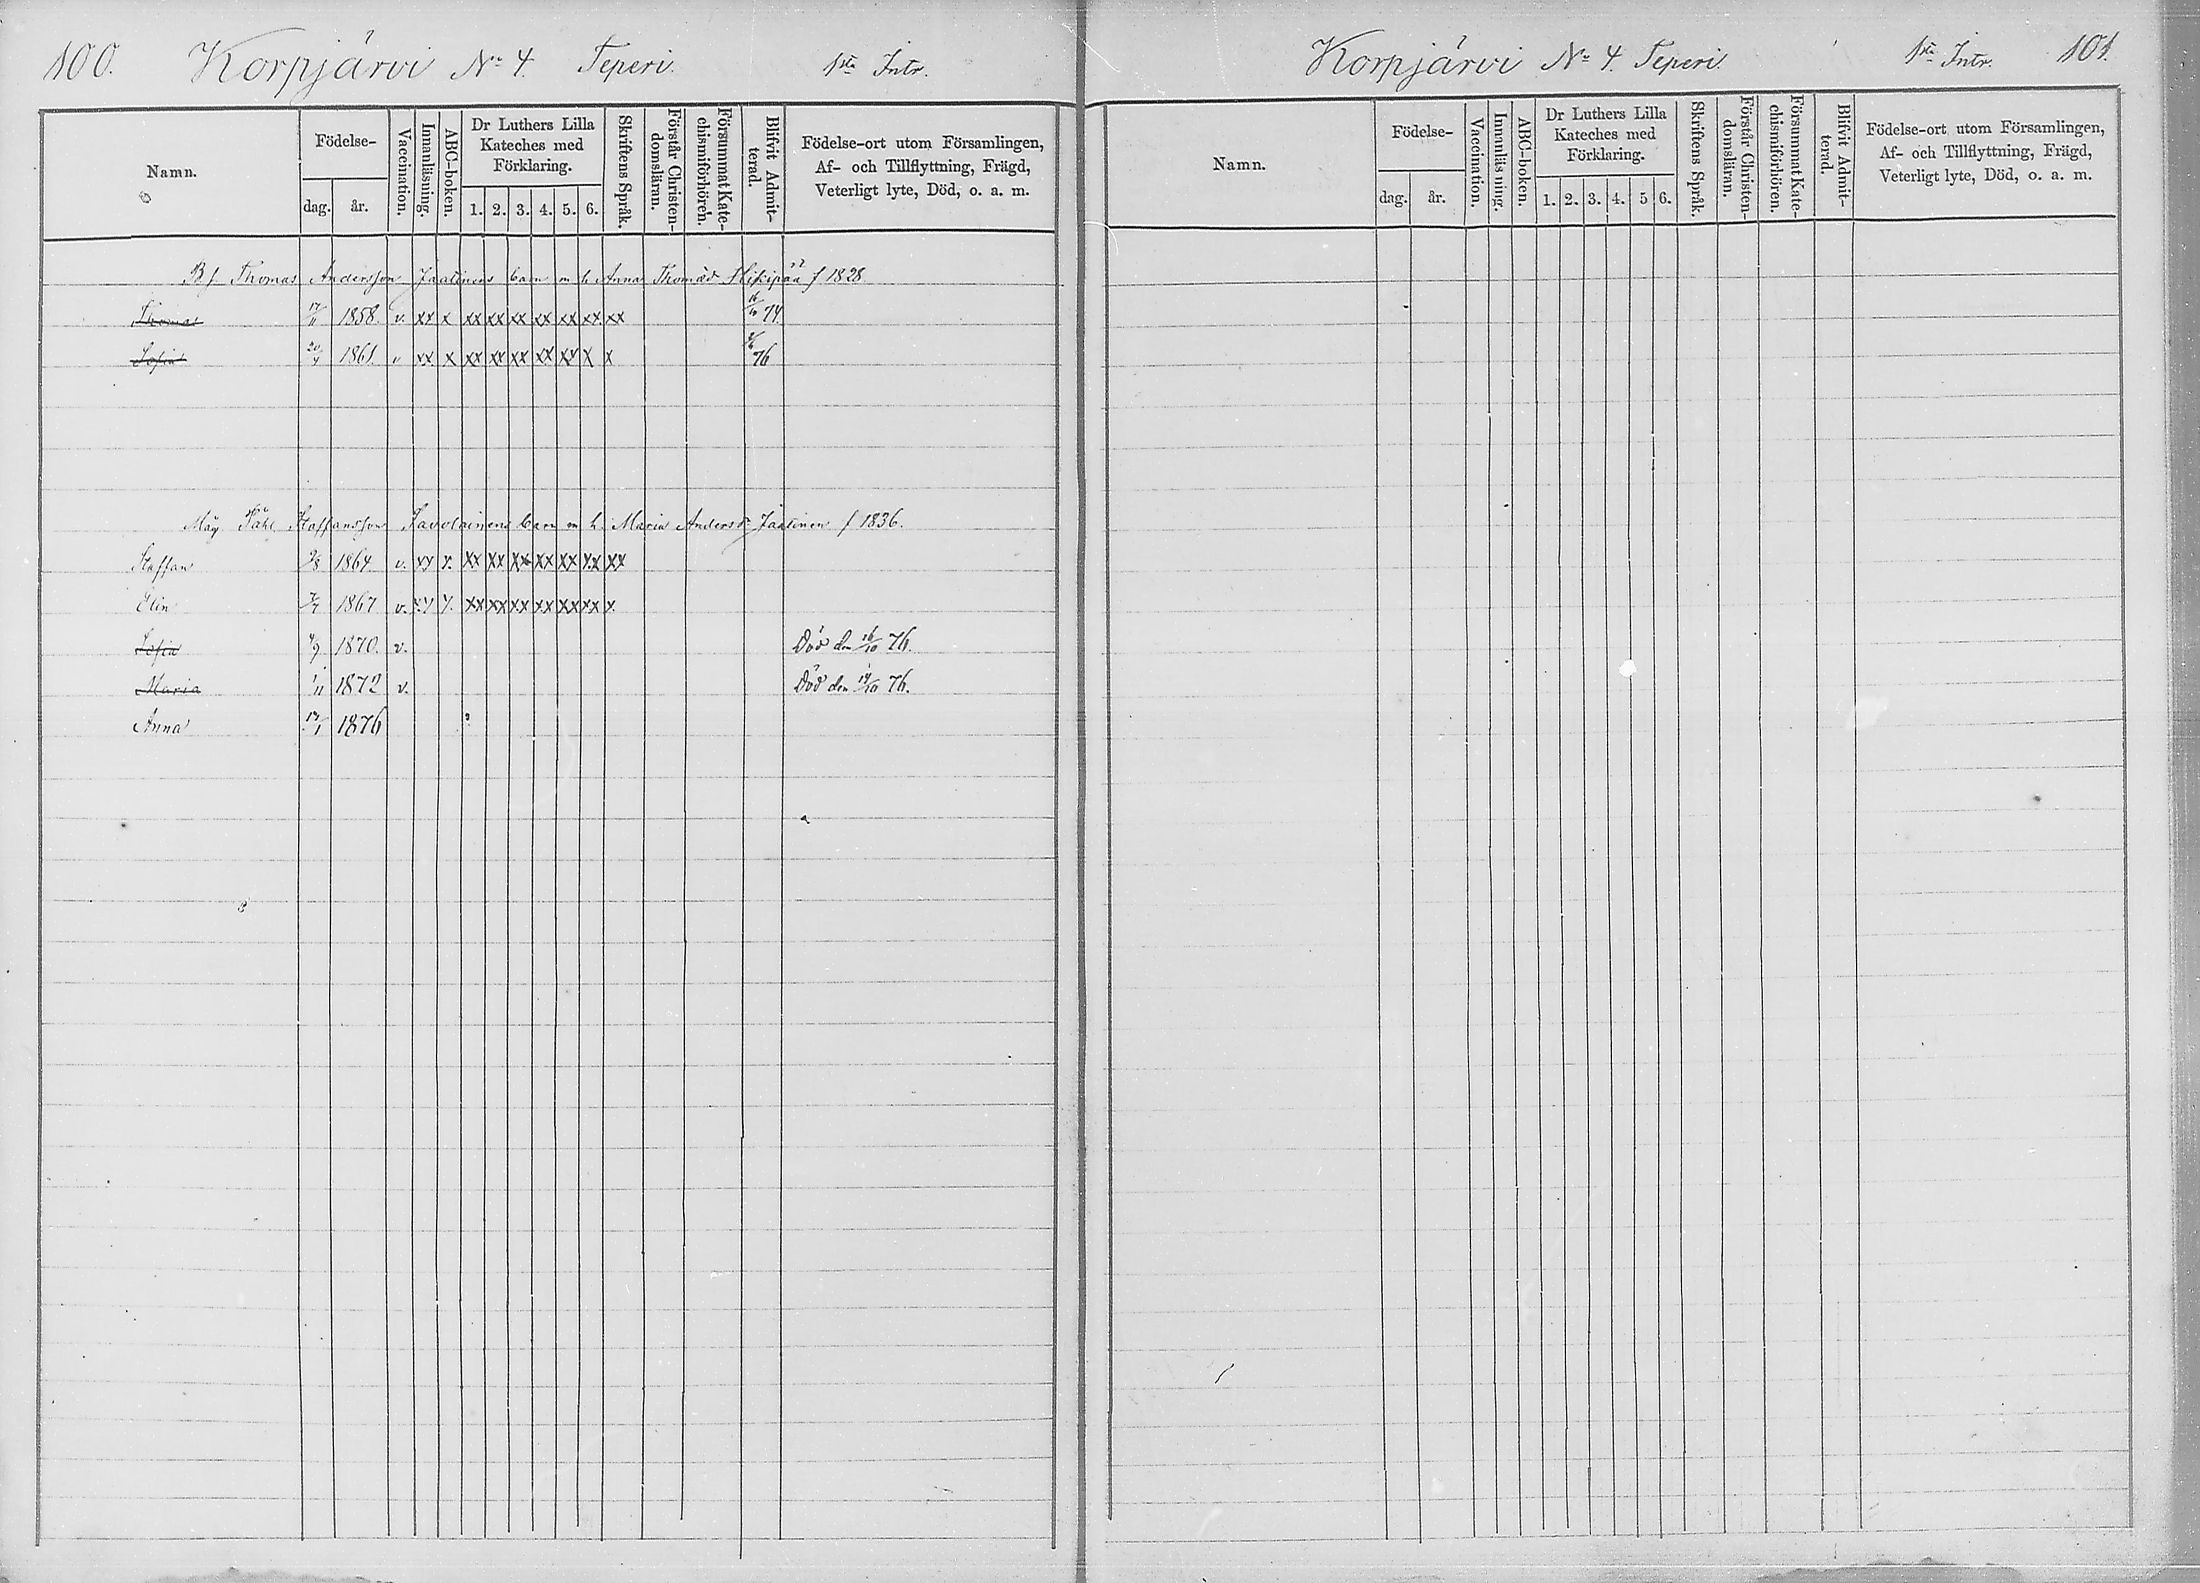 100. Korpjärvi No 4. Teperi. 1sta Intr.
Namn.
Födelse-
dag. år.
Vaccination.
Innanläsning.
ABC-boken.
Dr Luthers Lilla
Kateches med
Förklaring.
1. 2. 3. 4. 5. 6.
Skriftens Språk.
Förstår Christen-
domsläran.
Försummat Kate-
chismiförhören.
Blifvit Admit-
terad.
Födelse-ort utom Församlingen,
Af- och Tillflyttning, Frägd,
Veterligt lyte, Död, o. a. m.
Thomas Andersson Jaatinens barn m h Anna Thomæd f 1828
Thomas 17/11 1858. v. xx x xx xx xx xx xx xx xx 74.
Sofia 20/4 1861. v xx x xx xx xx xx xx x x 76
Måg Påhl Staffansson Tavolainens barn m h. Maria Andersdr Jaatinen f 1836.
Staffan 1864 v. xx x. xx xx xx xx xx xx xx
Elin 1867 v. xx x. xx xx xx xx xx xx x
Sofia 1870. v. Död den 16/10 76.
Maria 1/11 1872 v. Död den 19/10 76.
Anna 1876
Korpjärvi No 4. Teperi. 1sta Intr. 101.
Namn.
Födelse-
dag. år.
Vaccination.
Innanläsning.
ABC-boken.
Dr Luthers Lilla
Kateches med
Förklaring.
1. 2. 3. 4. 5 6.
Skriftens Språk.
Förstår Christen-
domsläran.
Försummat Kate-
chismiförhören.
Blifvit Admit-
terad.
Födelse-ort utom Församlingen,
Af- och Tillflyttning, Frägd,
Veterligt lyte, Död, o. a. m.